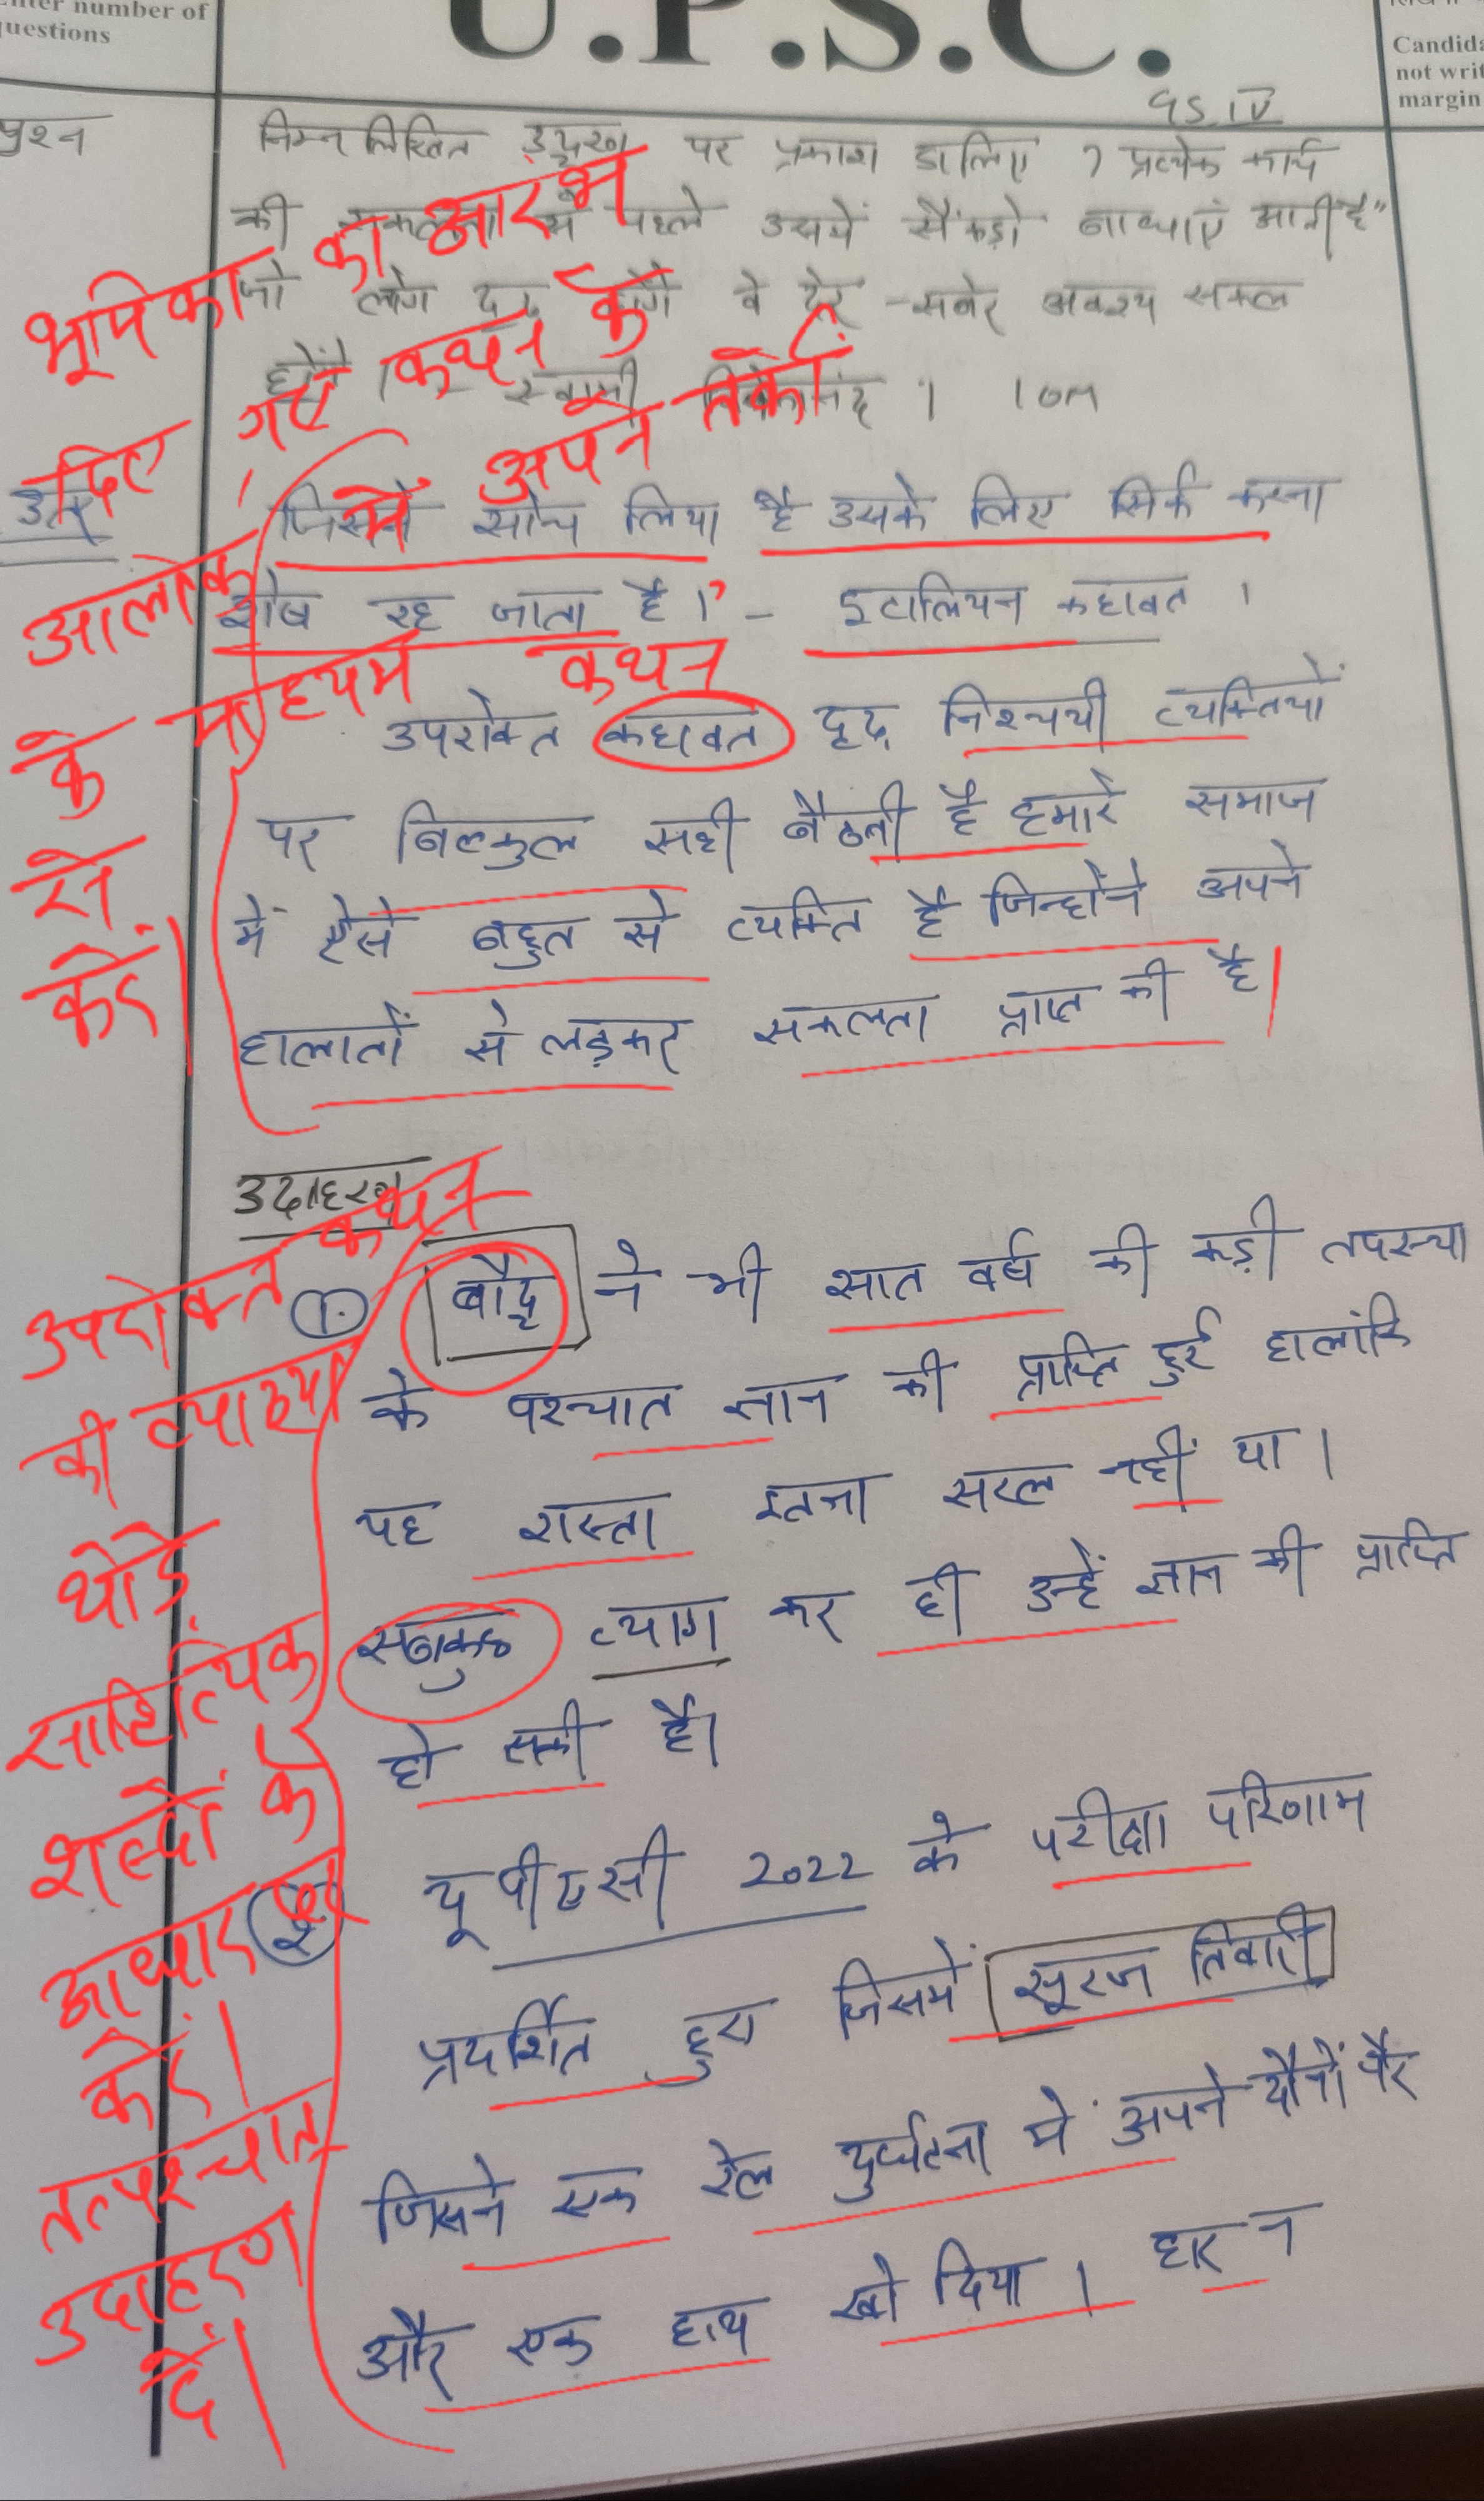 nter number of
uestions
U.P.S.C.
Candida
not writ
margin
GS IV
प्रश्न
निम्नलिखित उद्धरण पर प्रकाश डालिए ? प्रत्येक कार्य
की सफलता से पहले उसमें सैंकड़ो बाधाएं आती है"
जो लोग दृढ़ होंगे वे देर-सबेर अवश्य सफल
होंगे। - स्वामी विवेकानंद। 10M
उत्तर
जिसने सोच लिया है उसके लिए सिर्फ करना
शेष रह जाता है।" - इटालियन कहावत।
कथन
उपरोक्त कहावत दृढ़ निश्चयी व्यक्तियों
पर बिल्कुल सही बैठती है हमारे समाज
में ऐसे बहुत से व्यक्ति है जिन्होंने अपने
हालातों से लड़कर सफलता प्राप्त की है।
भूमिका का आरंभ
दिए गए कथन के
आलोक में अपने तर्कों
के माध्यम
से
करें।
उदाहरण
1. बौद्ध ने भी सात वर्ष की कड़ी तपस्या
के पश्चात ज्ञान की प्राप्ति हुई हालांकि
यह रास्ता इतना सरल नहीं था।
सबकुछ त्याग कर ही उन्हें ज्ञान की प्राप्ति
हो सकी है।
2 यूपीएससी 2022 के परीक्षा परिणाम
प्रदर्शित हुए जिसमें सूरज तिवारी
जिसने एक रेल दुर्घटना में अपने दौनों पैर
और एक हाथ खो दिया। हार न
उपरोक्त कथन
की व्याख्या
थोड़े
साहित्यिक
शब्दों के
आधार पर
करें।
तत्पश्चात्
उदाहरण
दें।